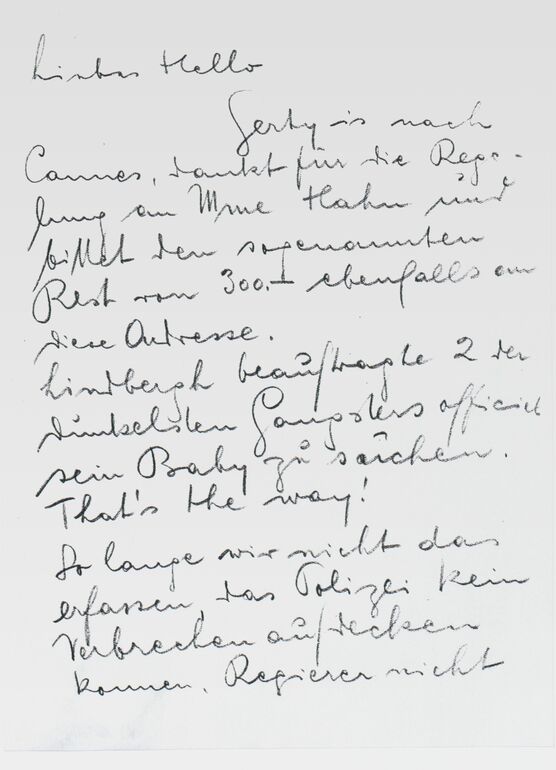 Liebes Hello
Gerty is nach
Cannes, dankt für die Rege-
lung an Mme Hahn und
bittet den sogenannten
Rest von 300.– ebenfalls an
diese Adresse.
Lindbergh beauftragte 2 der
dunkelsten Gangsters officiell
sein Baby zu suchen.
That's the way!
So lange wir nicht das
erfassen, das Polizei kein
Verbrechen aufdecken
konnen, Regierer nicht